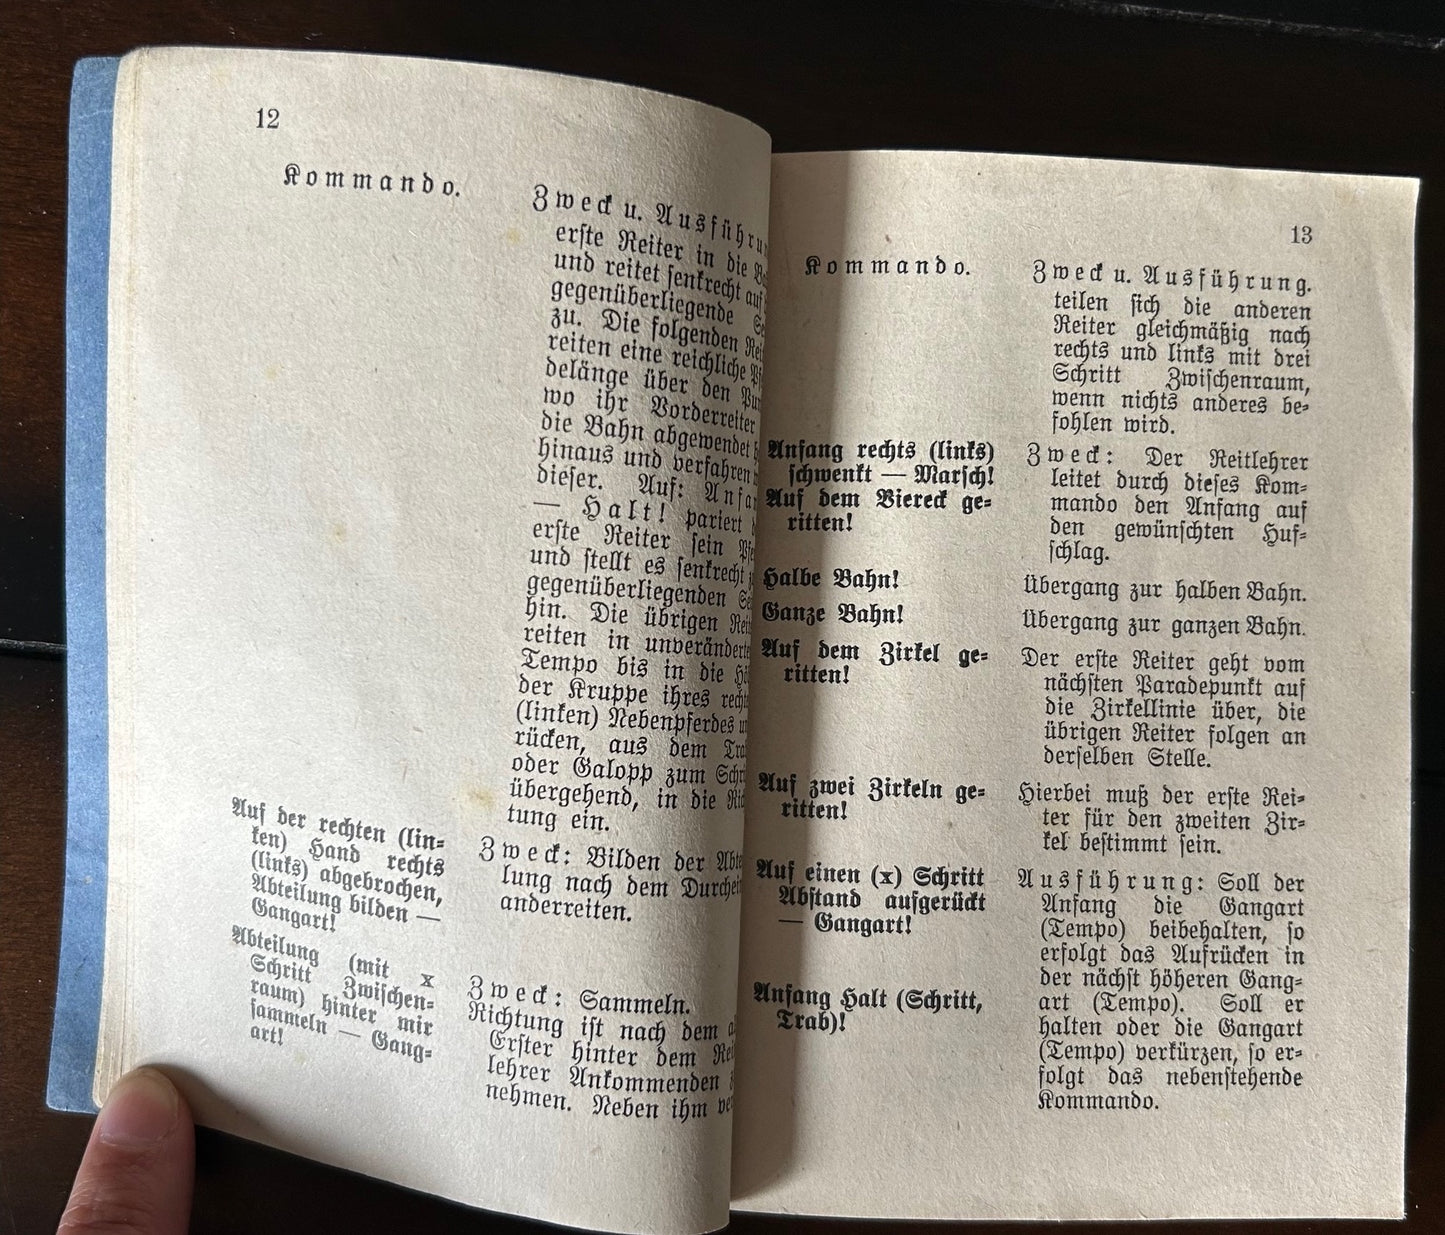 12
Kommando.
Zweck u. Ausführun
erste Reiter in die
und reitet senkrecht auf
gegenüberliegende
zu. Die folgenden
reiten eine reichliche
delänge über den
wo ihr Vorderreiter
die Bahn abgewendet
hinaus und verfahren
dieser. Auf: Anfa
— Halt! pariert
erste Reiter sein
und stellt es senkrecht
gegenüberliegenden
hin. Die übrigen
reiten in unveränderte
Tempo bis in die
der Kruppe ihres
(linken) Nebenpferdes
rücken, aus dem
oder Galopp zum
übergehend, in die
tung ein.
Auf der rechten (lin-
ken) Hand rechts
(links) abgebrochen,
Abteilung bilden —
Gangart!
Zweck: Bilden der
lung nach dem
anderreiten.
Abteilung (mit x
Schritt Zwischen-
raum) hinter mir
sammeln — Gang-
art!
Zweck: Sammeln.
Richtung ist nach dem
Erster hinter dem
lehrer Ankommenden
nehmen. Neben ihm
13
Kommando.
Zweck u. Ausführung.
teilen sich die anderen
Reiter gleichmäßig nach
rechts und links mit drei
Schritt Zwischenraum,
wenn nichts anderes be-
fohlen wird.
Anfang rechts (links)
schwenkt — Marsch!
Auf dem Viereck ge-
ritten!
Zweck: Der Reitlehrer
leitet durch dieses Kom-
mando den Anfang auf
den gewünschten Huf-
schlag.
Halbe Bahn!
Übergang zur halben Bahn.
Ganze Bahn!
Übergang zur ganzen Bahn.
Auf dem Zirkel ge-
ritten!
Der erste Reiter geht vom
nächsten Paradepunkt auf
die Zirkellinie über, die
übrigen Reiter folgen an
derselben Stelle.
Auf zwei Zirkeln ge-
ritten!
Hierbei muß der erste Rei-
ter für den zweiten Zir-
kel bestimmt sein.
Auf einen (x) Schritt
Abstand aufgerückt
— Gangart!
Ausführung: Soll der
Anfang die Gangart
(Tempo) beibehalten, so
erfolgt das Aufrücken in
der nächst höheren Gang-
art (Tempo). Soll er
halten oder die Gangart
(Tempo) verkürzen, so er-
folgt das nebenstehende
Kommando.
Anfang Halt (Schritt,
Trab)!